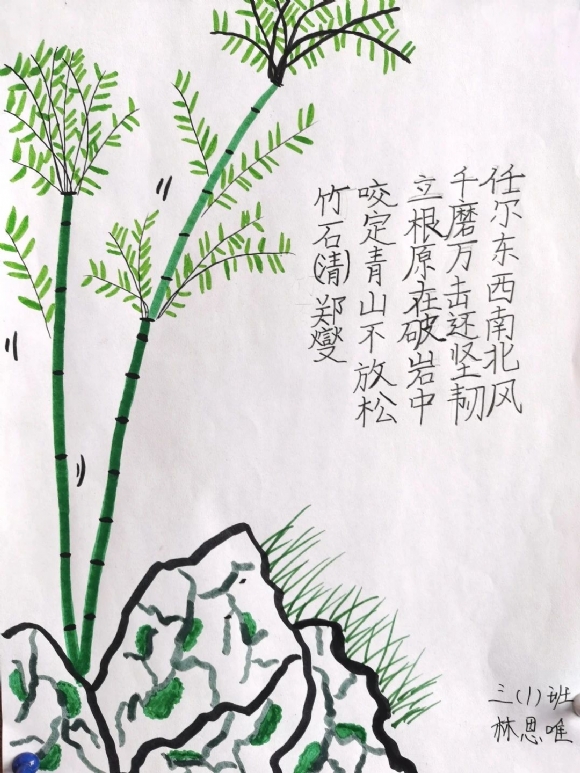 竹石(清)郑燮
咬定青山不放松
立根原在破岩中
千磨万击还坚韧
任尔东西南北风
三(1)班
林恩唯